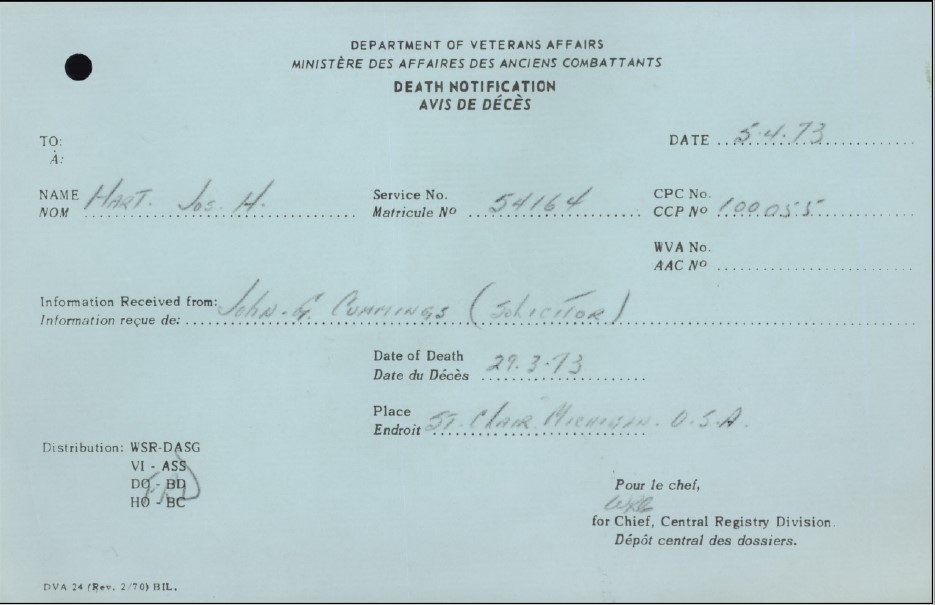 DEPARTMENT OF VETERANS AFFAIRS
MINISTÈRE DES AFFAIRES DES ANCIENS COMBATTANTS
DEATH NOTIFICATION
AVIS DE DÉCÈS
TO:
À:
DATE 5.4.73
NAME HART. Jos. H.
NOM
Service No. 54164
Matricule Nº
CPC No. 100055
CCP Nº
WVA No.
AAC Nº
Information Received from: John. G. Cummings (Solicitor)
Information reçue de:
Date of Death 29.3.73
Date du Décès
Place St. Clair. Michigan. U.S.A.
Endroit
Distribution: WSR-DASG
VI - ASS
DO - BD
HO - BC
Pour le chef,
for Chief, Central Registry Division.
Dépôt central des dossiers.
DVA 24 (Rev. 2/70) BIL.